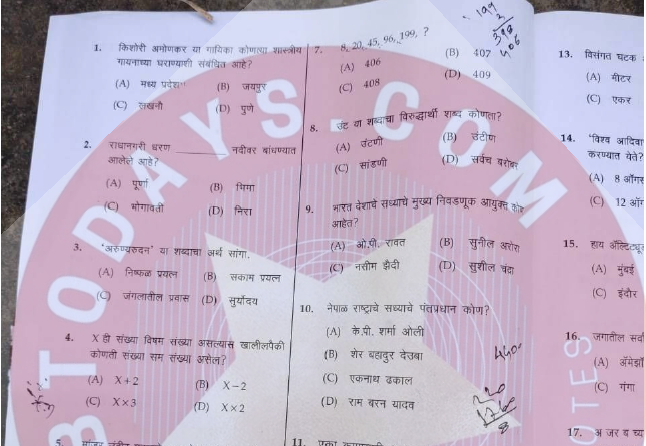 1. किशोरी अमोणकर या गायिका कोणत्या शास्त्रीय
गायनाच्या घराण्याशी संबंधित आहे?
(A) मध्य प्रदेश (B) जयपुर
(C) लखनौ (D) पुणे
2. राधानगरी धरण ________ नदीवर बांधण्यात
आलेले आहे?
(A) पूर्णा (B) भिमा
(C) भोगावती (D) निरा
3. 'अरुण्यरुदन' या शब्दाचा अर्थ सांगा.
(A) निष्फळ प्रयत्न (B) सकाम प्रयत्न
(C) जंगलातील प्रवास (D) सुर्योदय
4. X ही संख्या विषम संख्या असल्यास खालीलपैकी
कोणती संख्या सम संख्या असेल?
(A) X+2 (B) X−2
(C) X×3 (D) X×2
5.
7. 8, 20, 45, 96, 199, ?
(A) 406 (B) 407
(C) 408 (D) 409
8. उंट या शब्दाचा विरुद्धार्थी शब्द कोणता?
(A) उंटणी (B) उंटीण
(C) सांडणी (D) सर्वच बरोबर
9. भारत देशाचे सध्याचे मुख्य निवडणूक आयुक्त कोण
आहेत?
(A) ओ.पी. रावत (B) सुनील अरोरा
(C) नसीम झैदी (D) सुशील चंद्रा
10. नेपाळ राष्ट्राचे सध्याचे पंतप्रधान कोण?
(A) के.पी. शर्मा ओली
(B) शेर बहादुर देउबा
(C) एकनाथ ढकाल
(D) राम बरन यादव
11.
13. विसंगत घटक
(A) मीटर
(C) एकर
14. 'विश्व आदिवा
करण्यात येते?
(A) 8 ऑगस
(C) 12 ऑग
15. हाय ऑल्टिट्यूड
(A) मुंबई
(C) इंदौर
16. जगातील सर्वा
(A) ॲमेझॉ
(C) गंगा
17. अ जर ब च्या
BTODAYS.COM
OTES
199
2
398